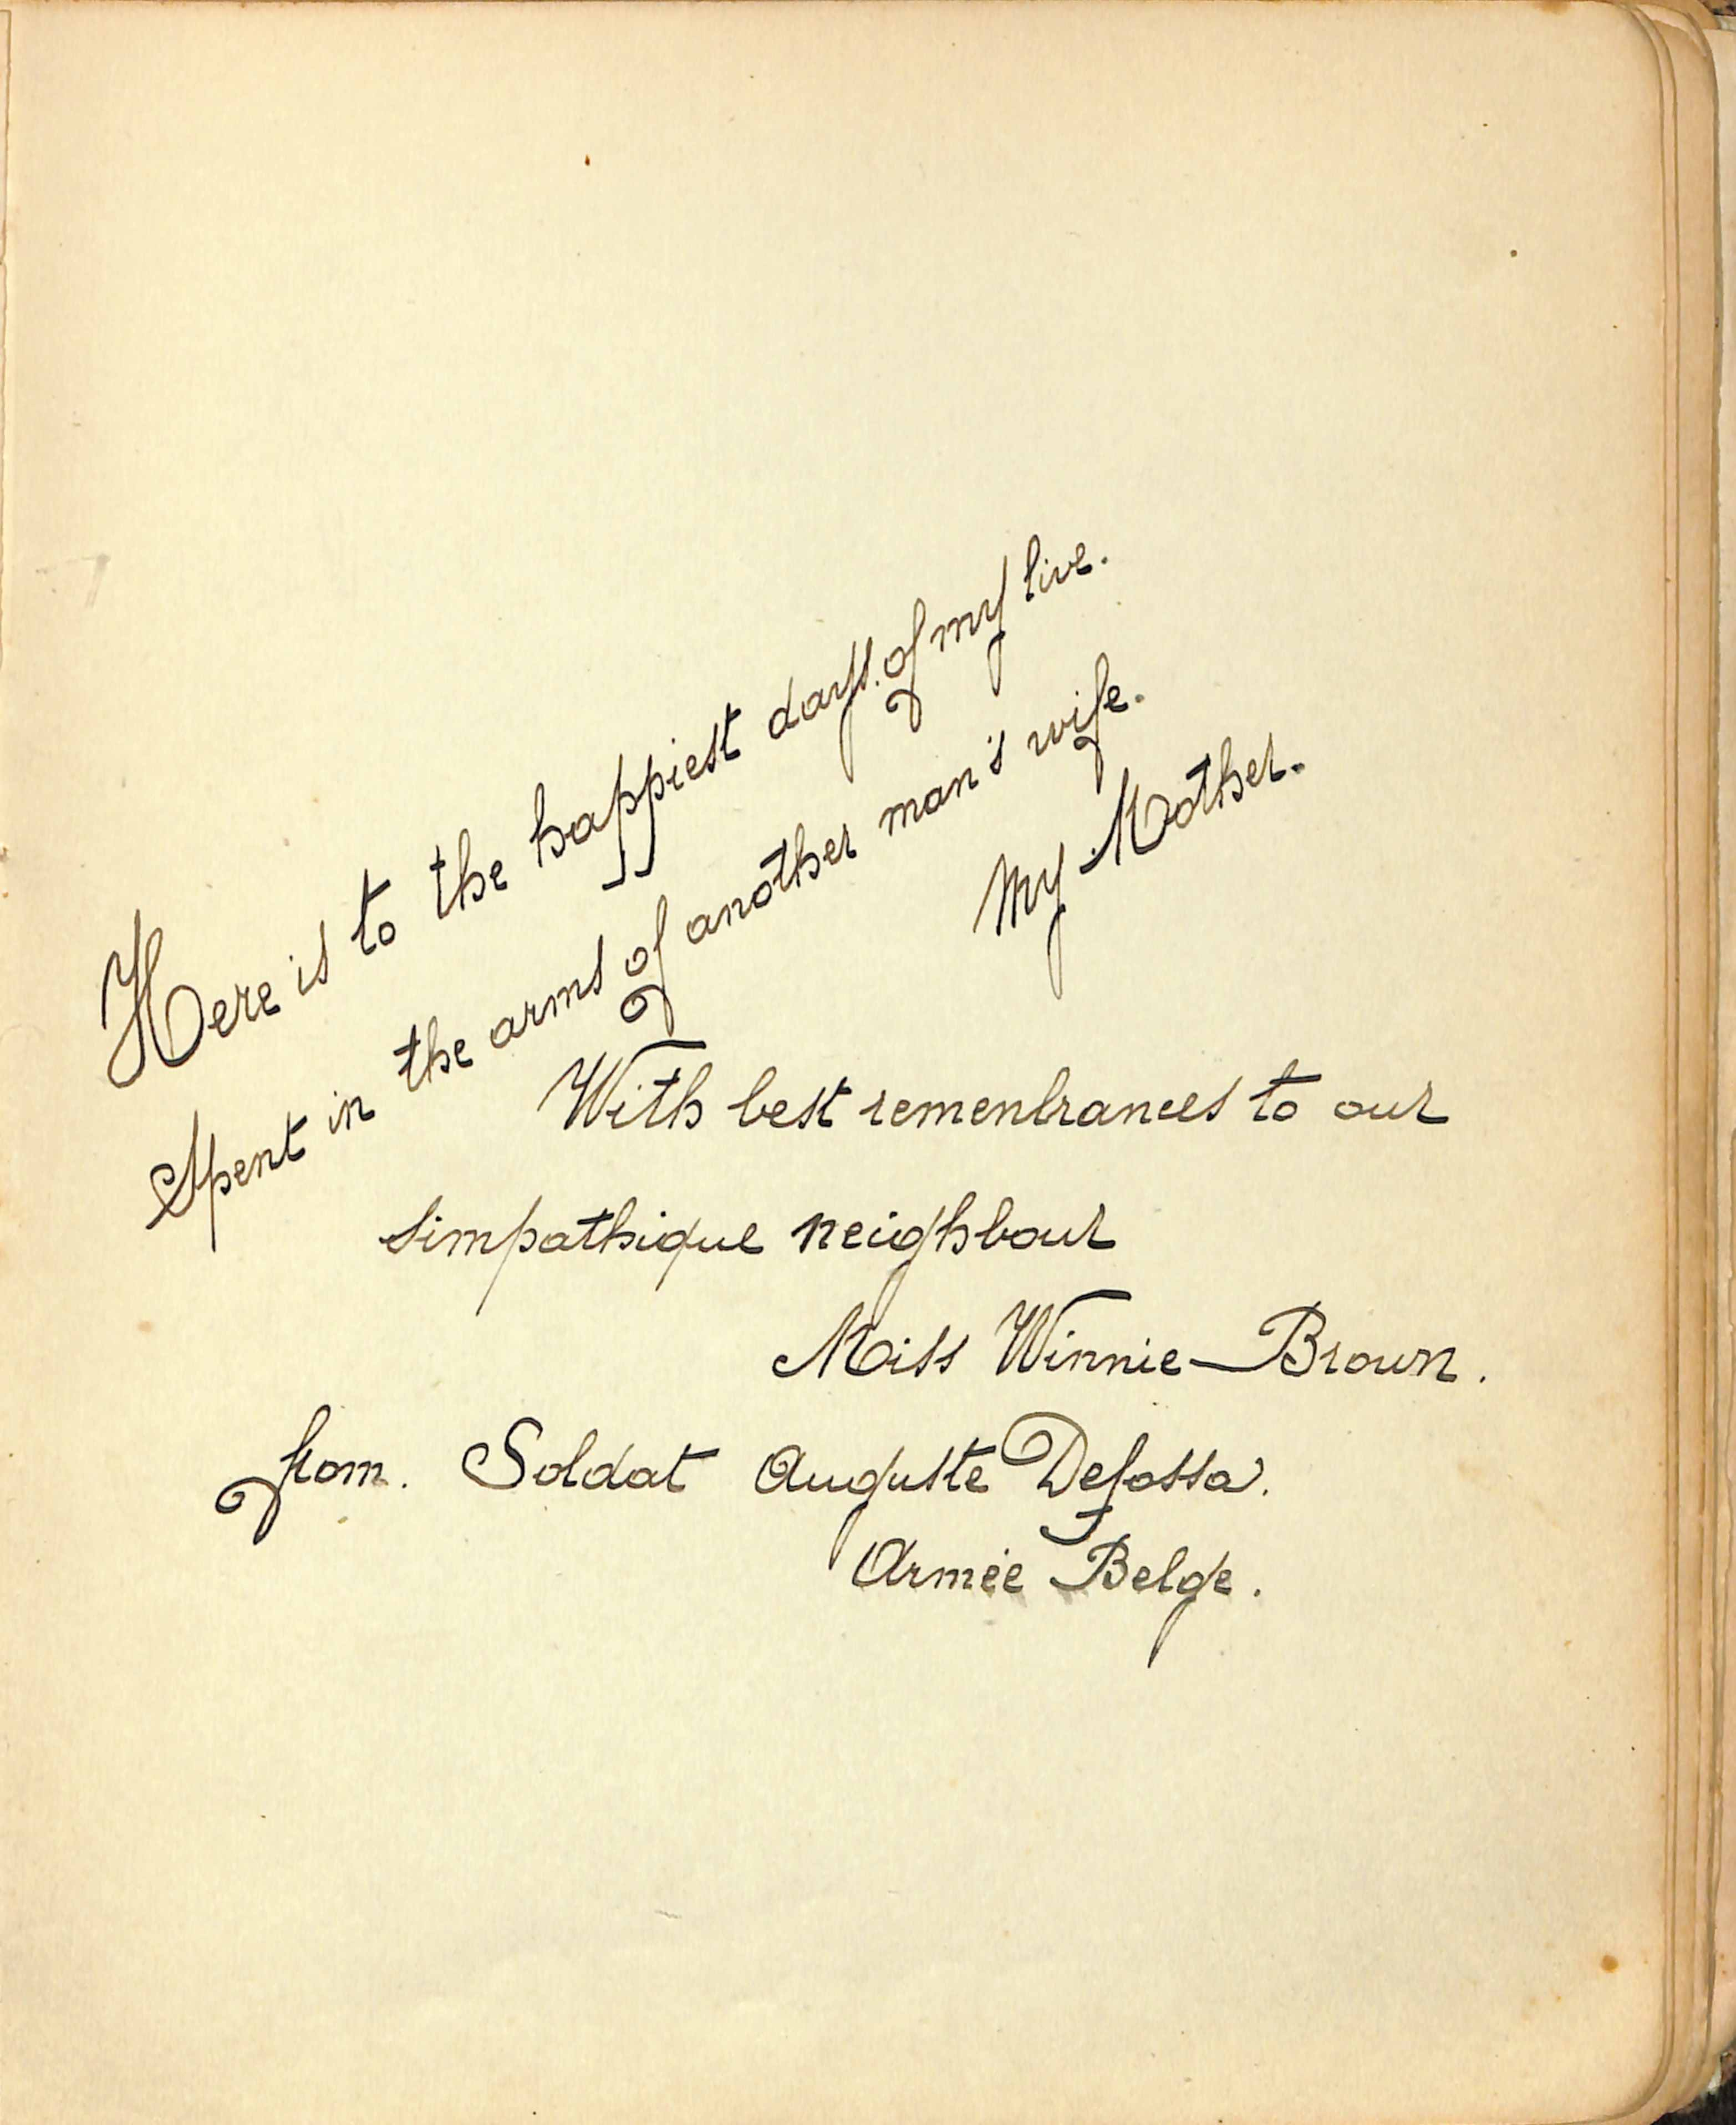 Here is to the happiest days. of my live.
Spent in the arms of another man's wife.
My Mother.
With best remenbrances to our
simpathique neighbour
Miss Winnie-Brown.
from. Soldat Auguste Defossa.
Armée Belge.